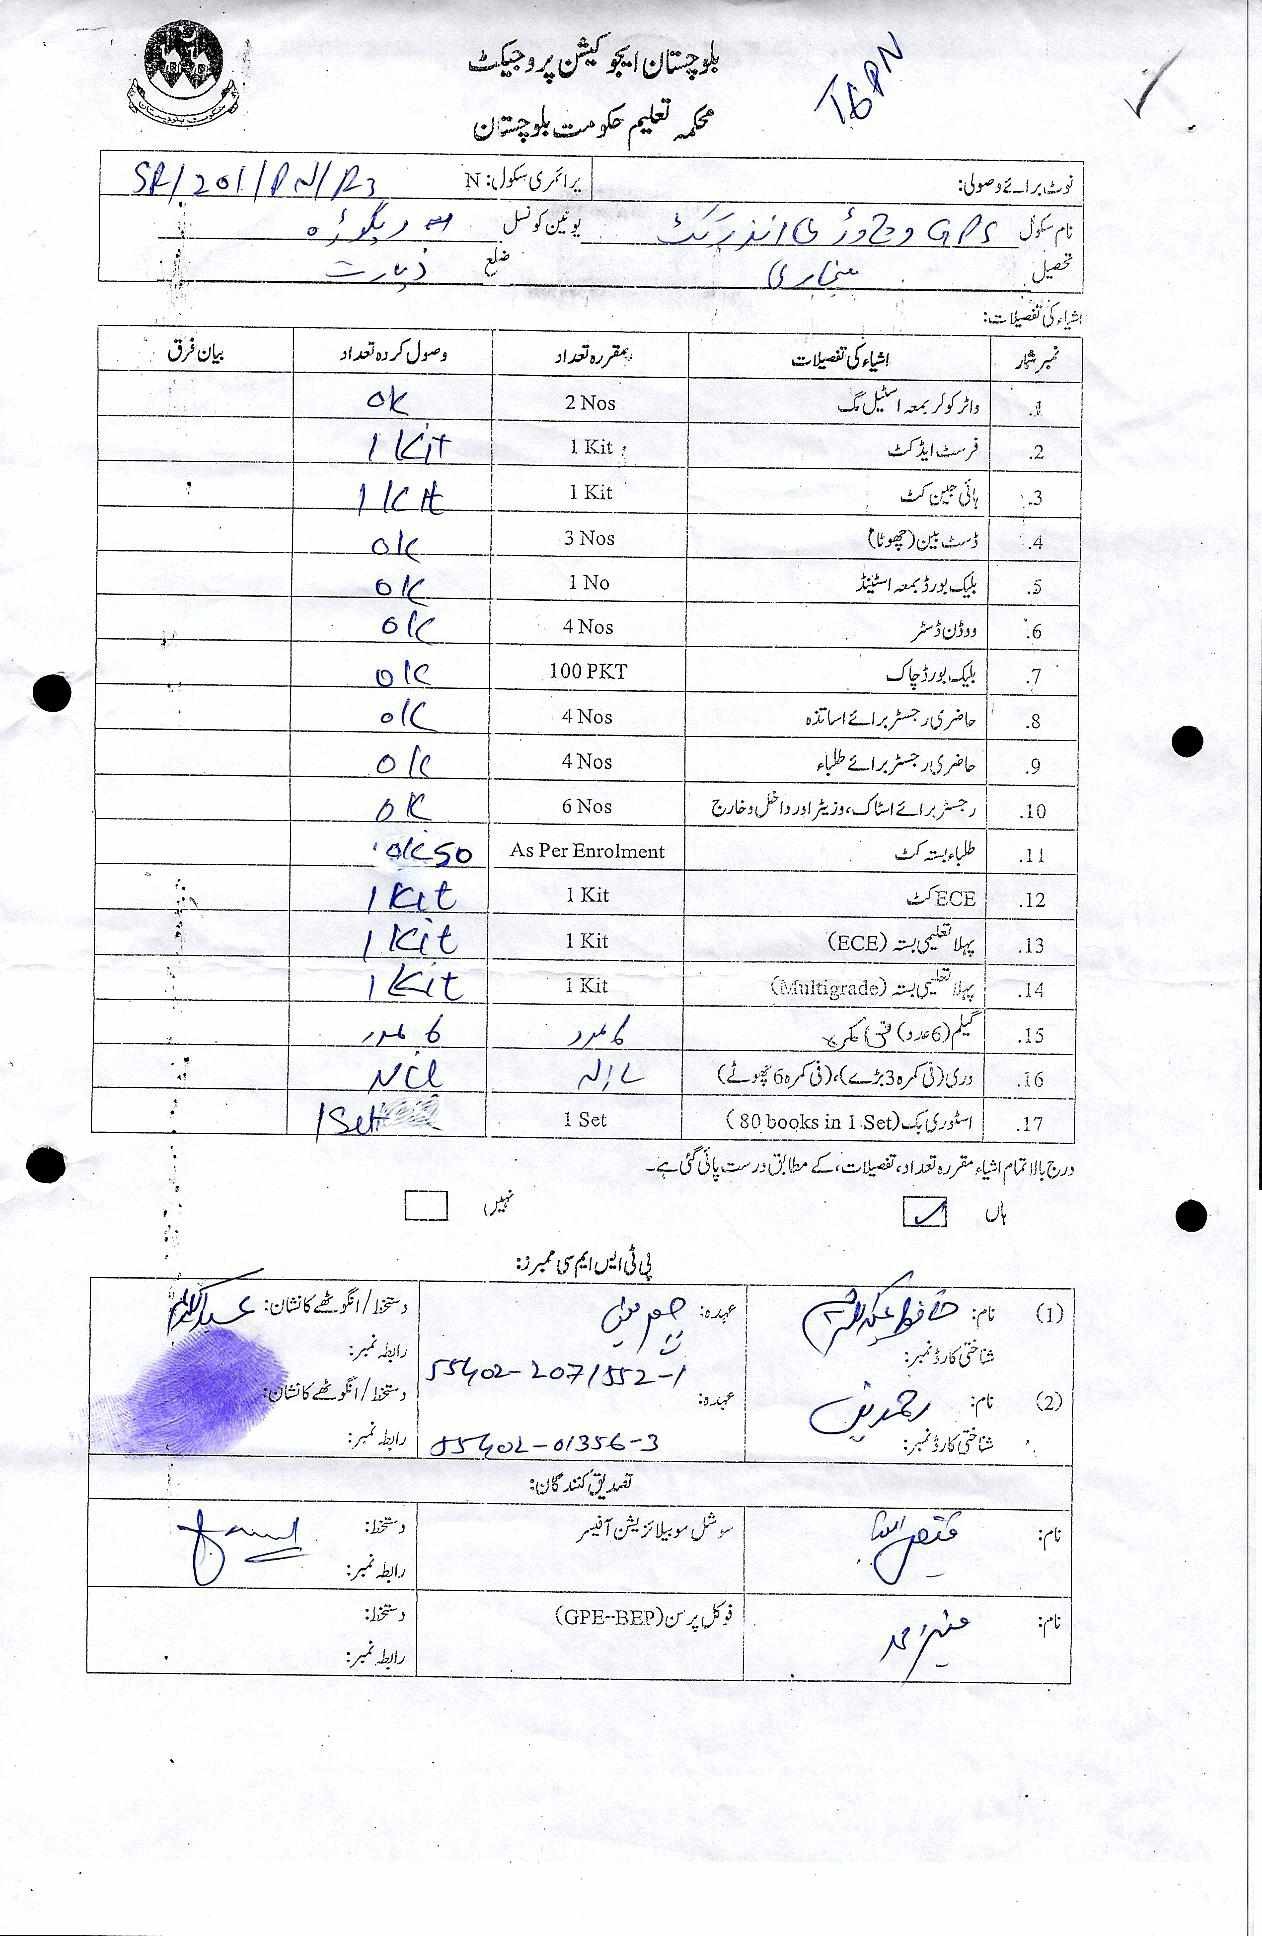 بلوچستان ایجوکیشن پروجیکٹ
محکمہ تعلیم حکومت بلوچستان
TGPN
نوٹ برائے وصولی: پرائمری سکول: N SR/201/PN/R3
نام سکول GPS یونین کونسل
تحصیل سنجاوی ضلع زیارت
اشیاء کی تفصیلات:
نمبر شمار اشیاء کی تفصیلات مقررہ تعداد وصول کردہ تعداد بیان فرق
1. واٹر کولر بمعہ اسٹیل مگ 2 Nos OK
2. فرسٹ ایڈ کٹ 1 Kit 1 Kit
3. ہائی جین کٹ 1 Kit 1 Kit
4. ڈسٹ بین (چھوٹا) 3 Nos OK
5. بلیک بورڈ بمعہ اسٹینڈ 1 No OK
6. ووڈن ڈسٹر 4 Nos OK
7. بلیک بورڈ چاک 100 PKT OK
8. حاضری رجسٹر برائے اساتذہ 4 Nos OK
9. حاضری رجسٹر برائے طلباء 4 Nos OK
10. رجسٹر برائے اسٹاک، وزیٹر اور داخل و خارج 6 Nos OK
11. طلباء بستہ کٹ As Per Enrolment OK 50
12. ECE کٹ 1 Kit 1 Kit
13. پہلا تعلیمی بستہ (ECE) 1 Kit 1 Kit
14. پہلا تعلیمی بستہ (Multigrade) 1 Kit 1 Kit
15. گیلم (6 عدد) فی کمرہ 6 عدد 6 عدد
16. دری (فی کمرہ 3 بڑے)، (فی کمرہ 6 چھوٹے) Nil
17. اسٹوری بک (80 books in 1 Set) 1 Set 1 Set
درج بالا تمام اشیاء مقررہ تعداد، تفصیلات، کے مطابق درست پائی گئی ہے۔
ہاں ✓ نہیں
پی ٹی ایس ایم سی ممبرز:
(1) نام: حافظ عہدہ: دستخط/انگوٹھے کا نشان:
شناختی کارڈ نمبر: 55402-2071552-1 رابطہ نمبر:
(2) نام: عہدہ: دستخط/انگوٹھے کا نشان:
شناختی کارڈ نمبر: 55402-01356-3 رابطہ نمبر:
تصدیق کنندگان:
نام: سوشل موبیلائزیشن آفیسر دستخط:
رابطہ نمبر:
نام: منیر احمد فوکل پرسن (GPE-BEP) دستخط:
رابطہ نمبر: